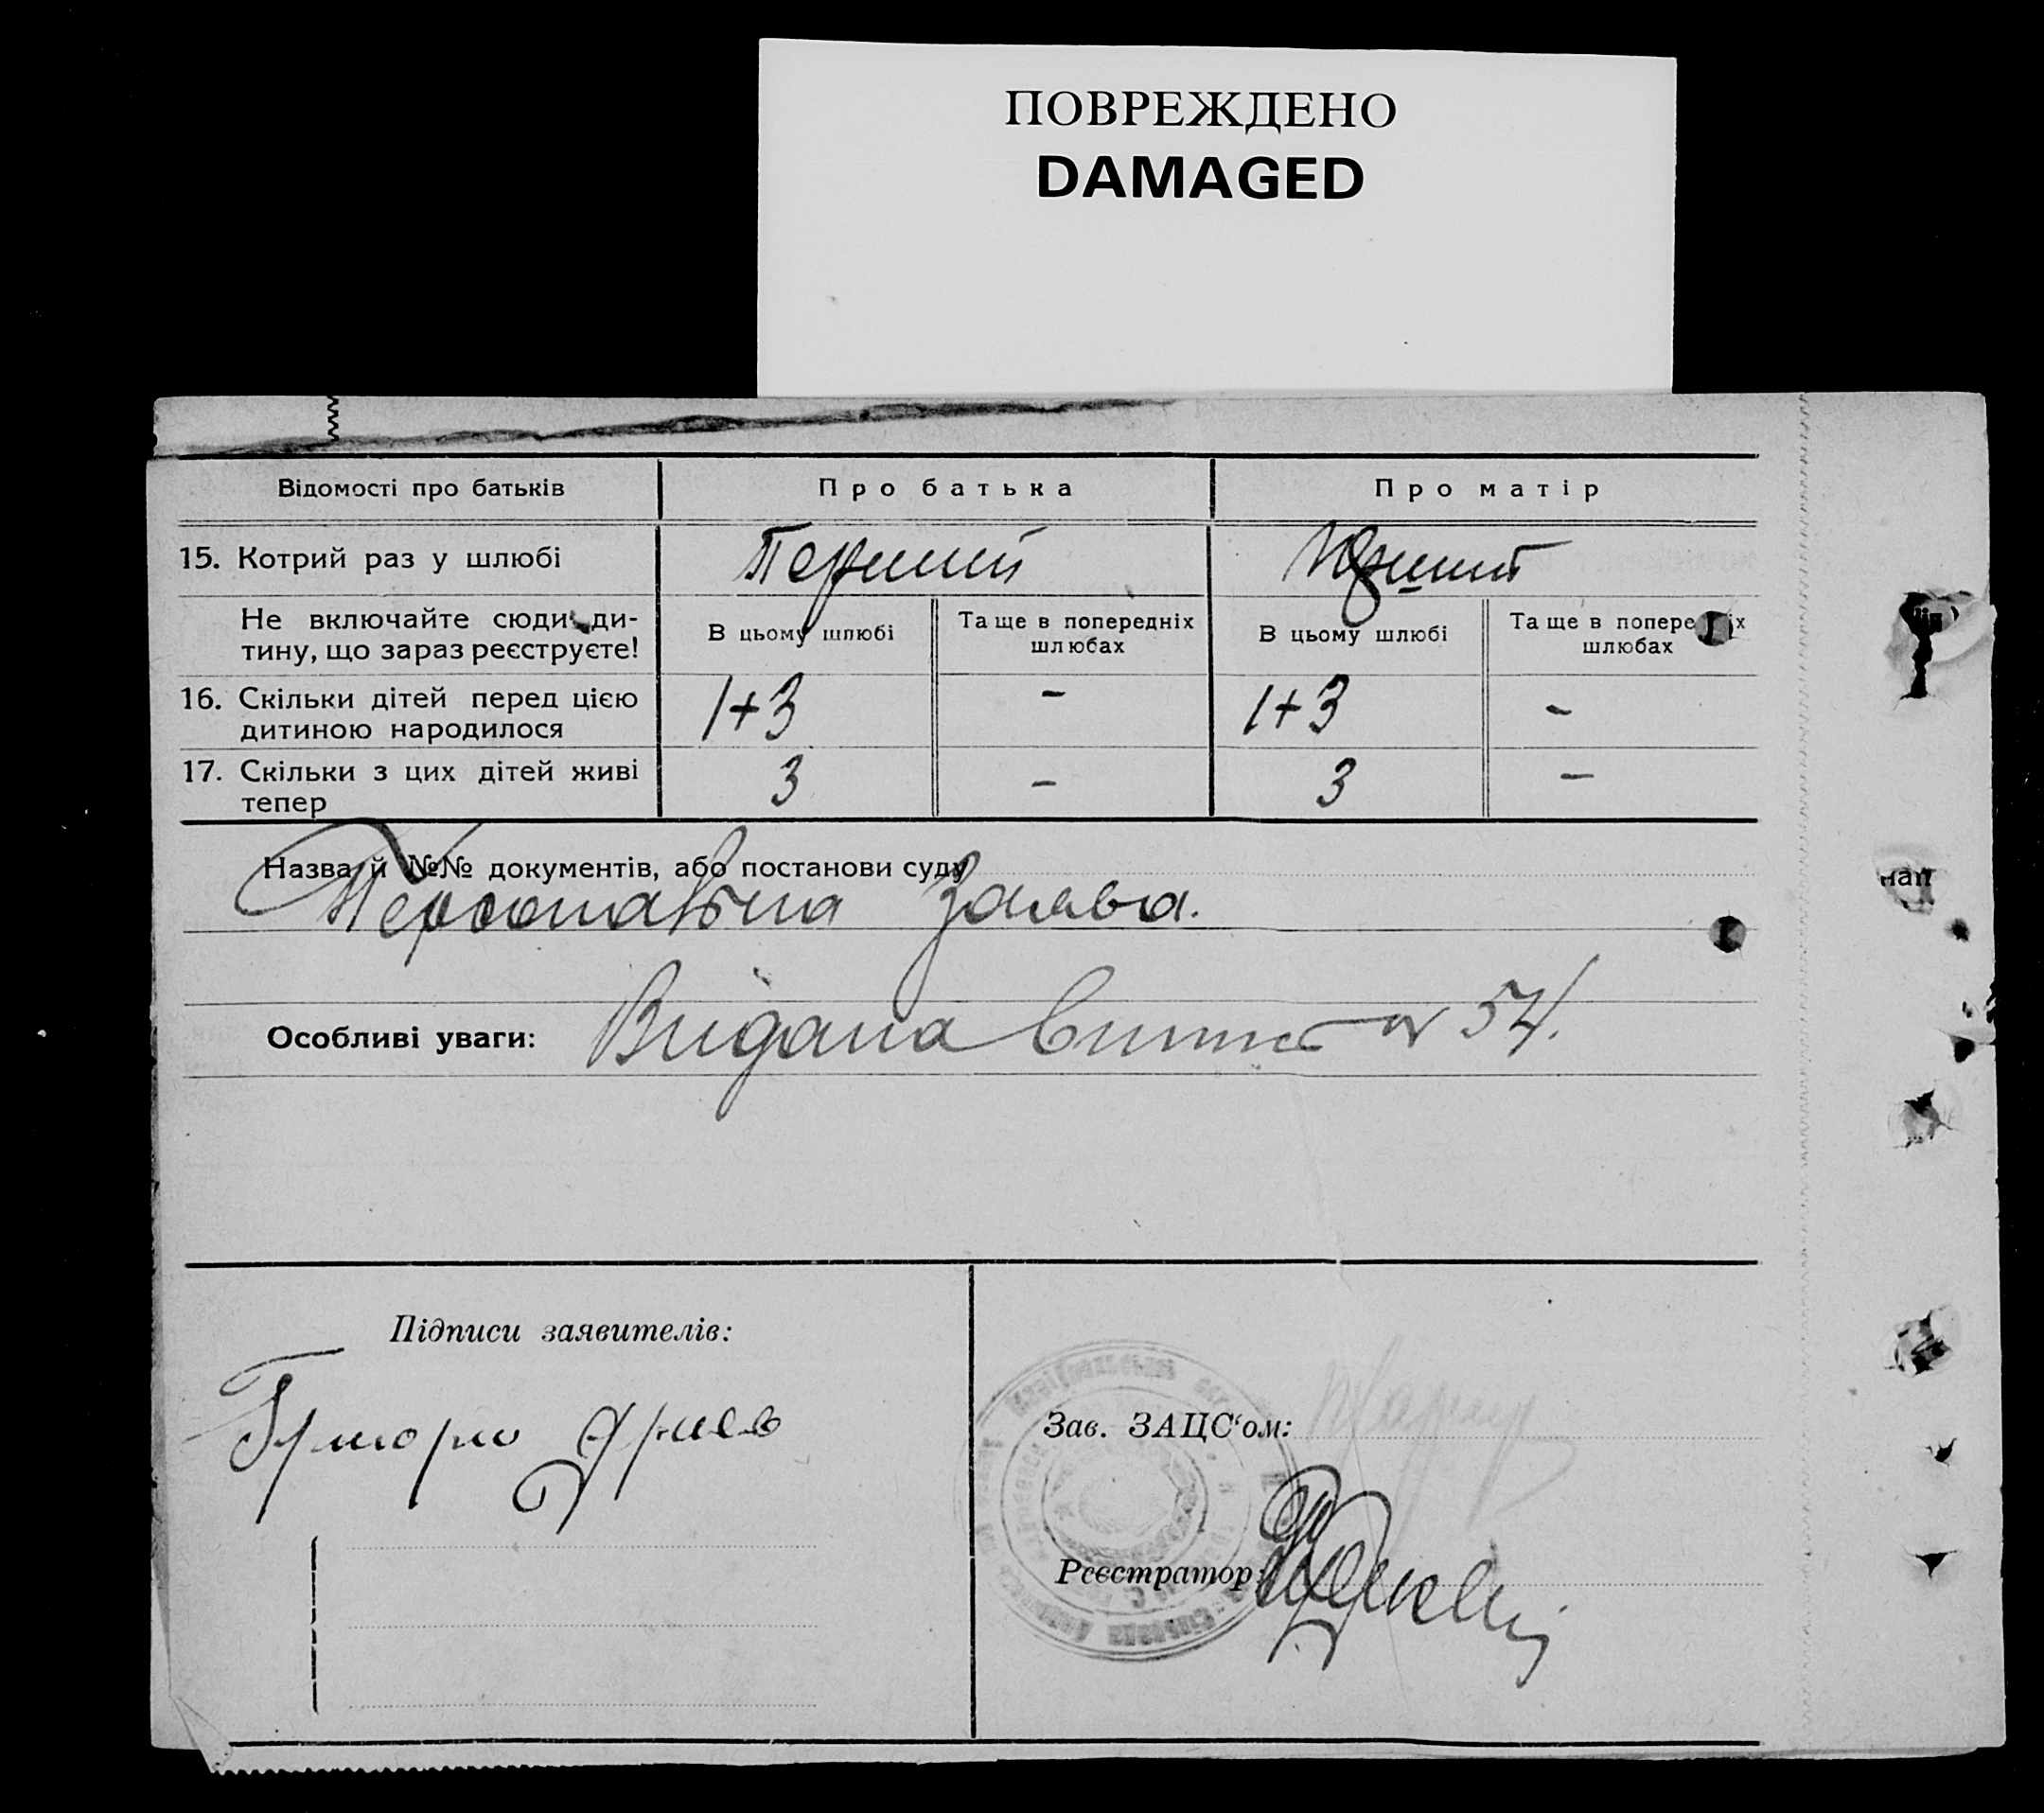 ПОВРЕЖДЕНО
DAMAGED
Відомості про батьків
Про батька
Про матір
15. Котрий раз у шлюбі
Перший
Перший
Не включайте сюди ди-
тину, що зараз реєструєте!
В цьому шлюбі
Та ще в попередніх
шлюбах
В цьому шлюбі
Та ще в попередніх
шлюбах
16. Скільки дітей перед цією
дитиною народилося
1+3
-
1+3
-
17. Скільки з цих дітей живі
тепер
3
-
3
-
Назва й №№ документів, або постанови суду
Персональна Заява.
Особливі уваги: Видана 54.
Підписи заявителів:
Зав. ЗАЦС‘ом:
Реєстратор: